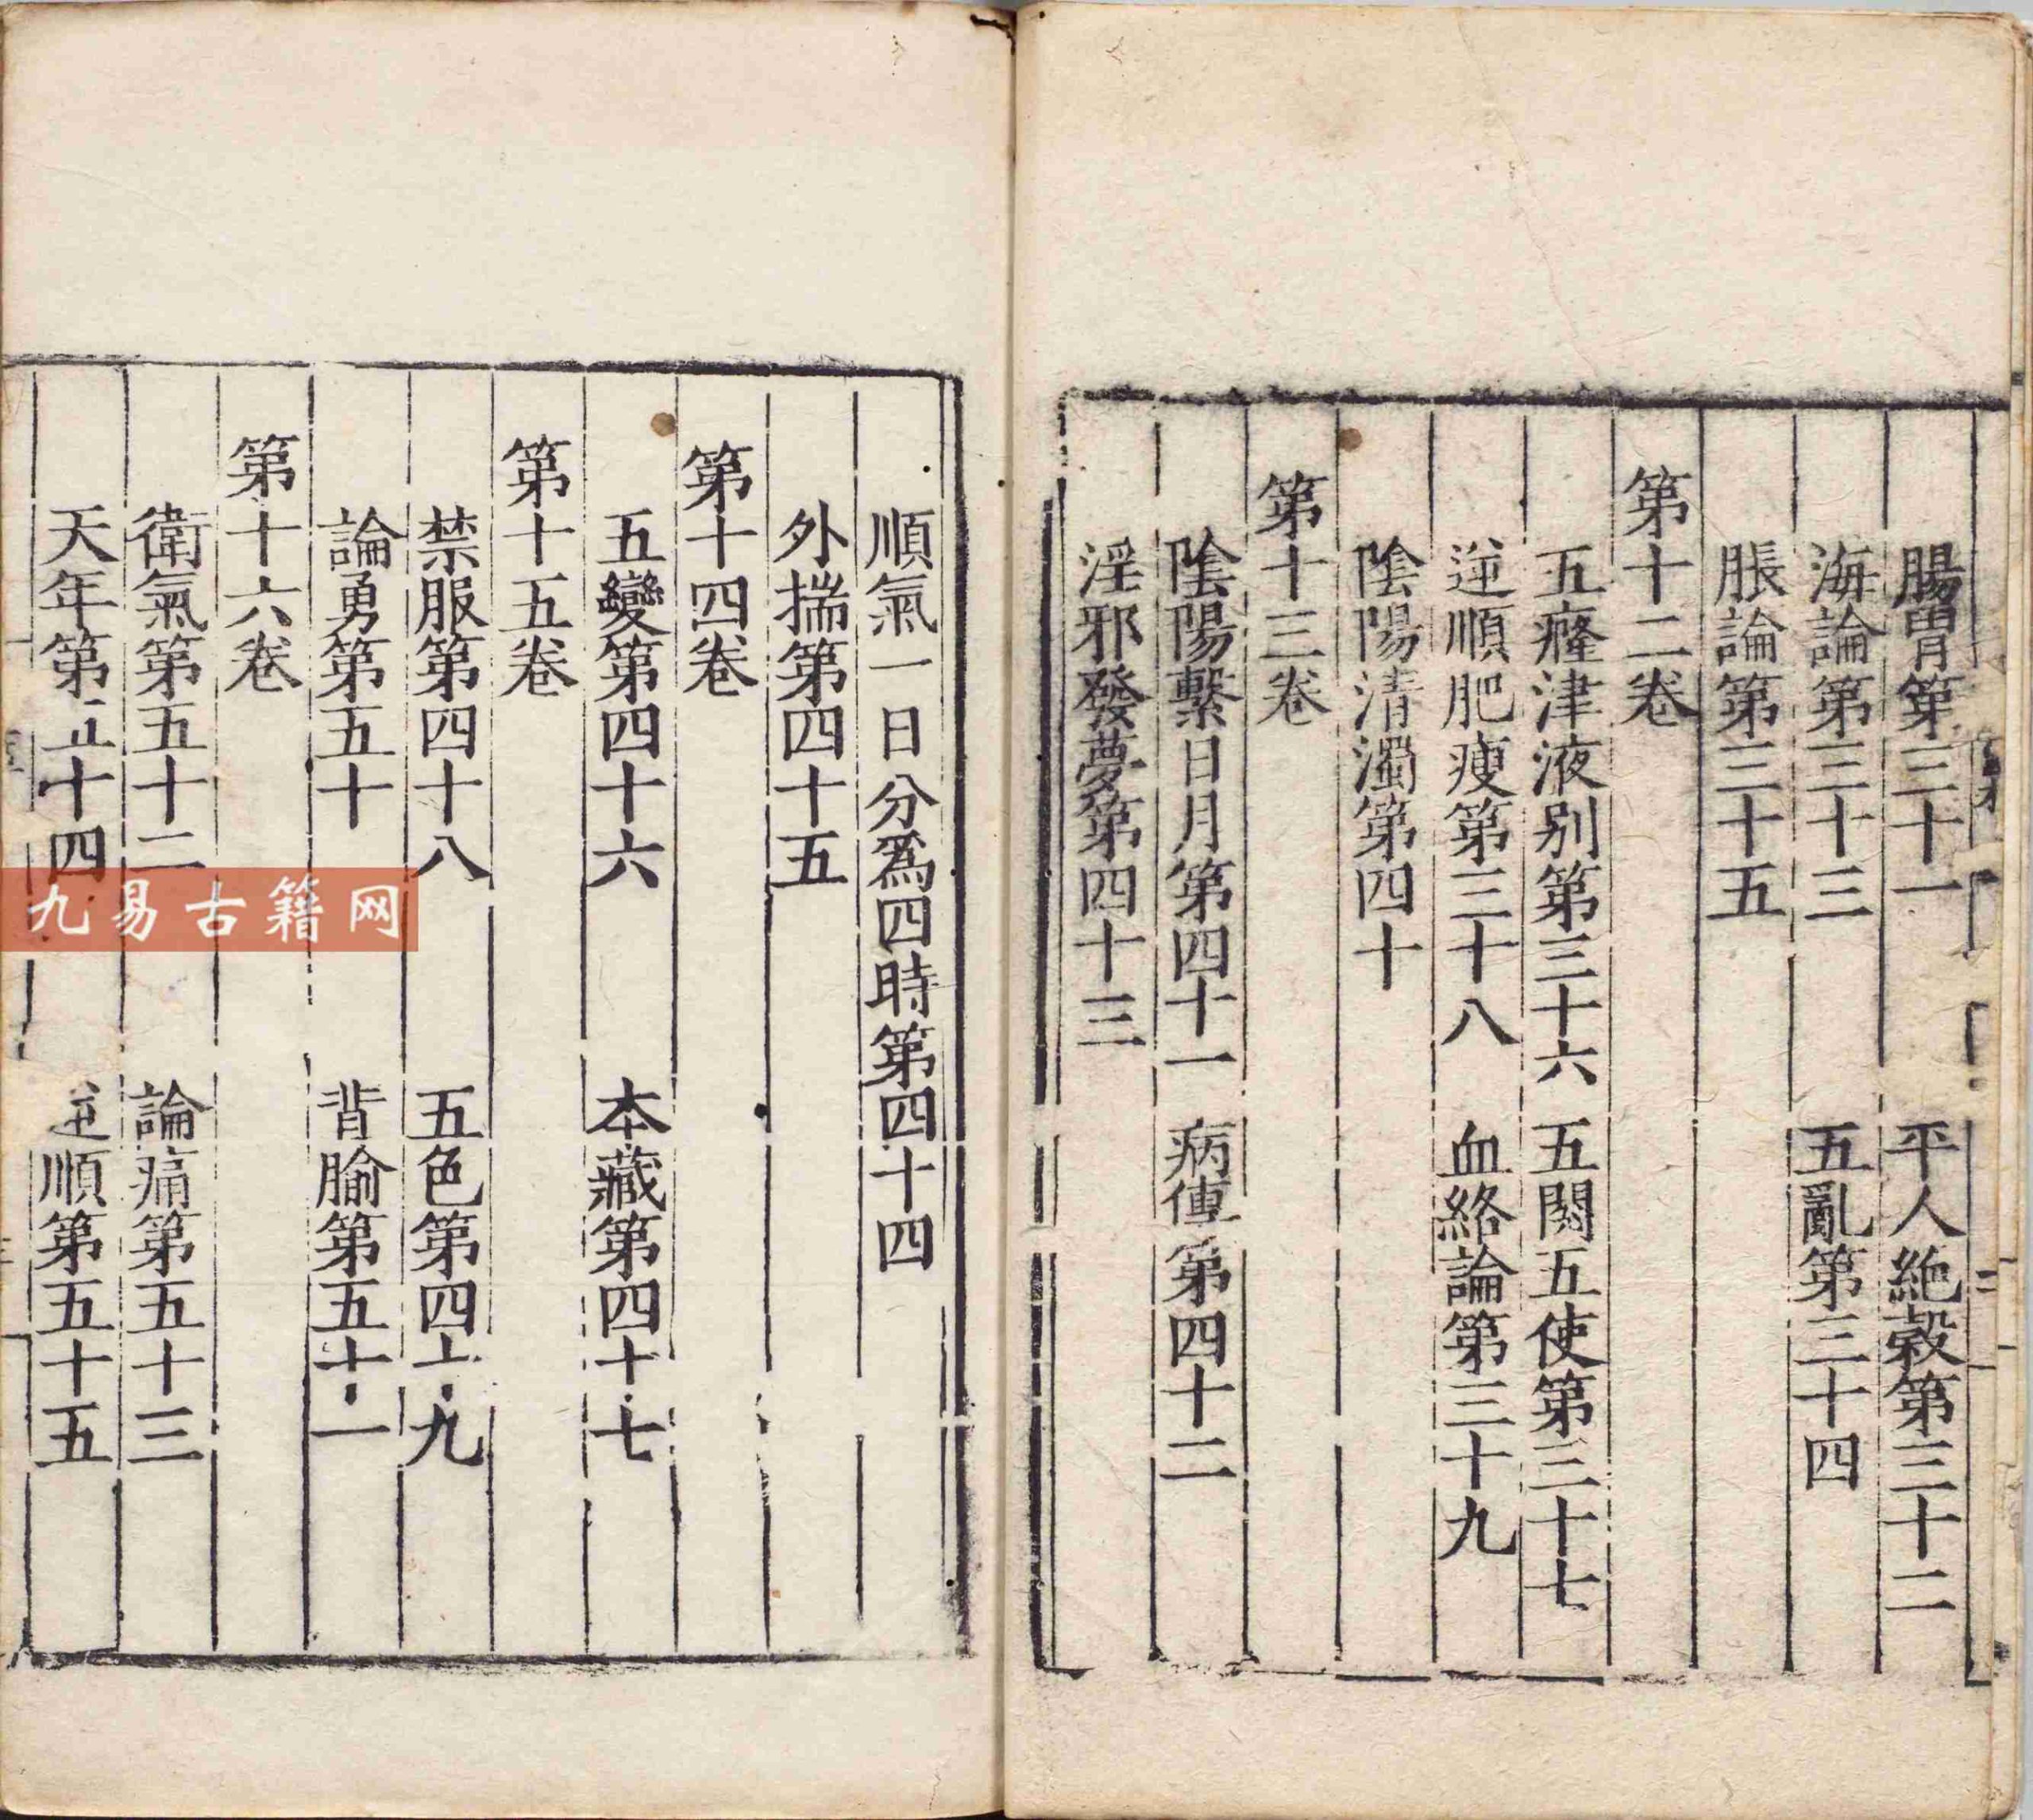 腸胃第三十一　平人絶穀第三十二
海論第三十三　五亂第三十四
脹論第三十五
第十二卷
五癃津液别第三十六　五閱五使第三十七
逆順肥瘦第三十八　血絡論第三十九
陰陽清濁第四十
第十三卷
陰陽繫日月第四十一　病傳第四十二
淫邪發夢第四十三
順氣一日分爲四時第四十四
外揣第四十五
第十四卷
五變第四十六　本藏第四十七
第十五卷
禁服第四十八　五色第四十九
論勇第五十　背腧第五十一
第十六卷
衛氣第五十二　論痛第五十三
天年第五十四　逆順第五十五
九易古籍网